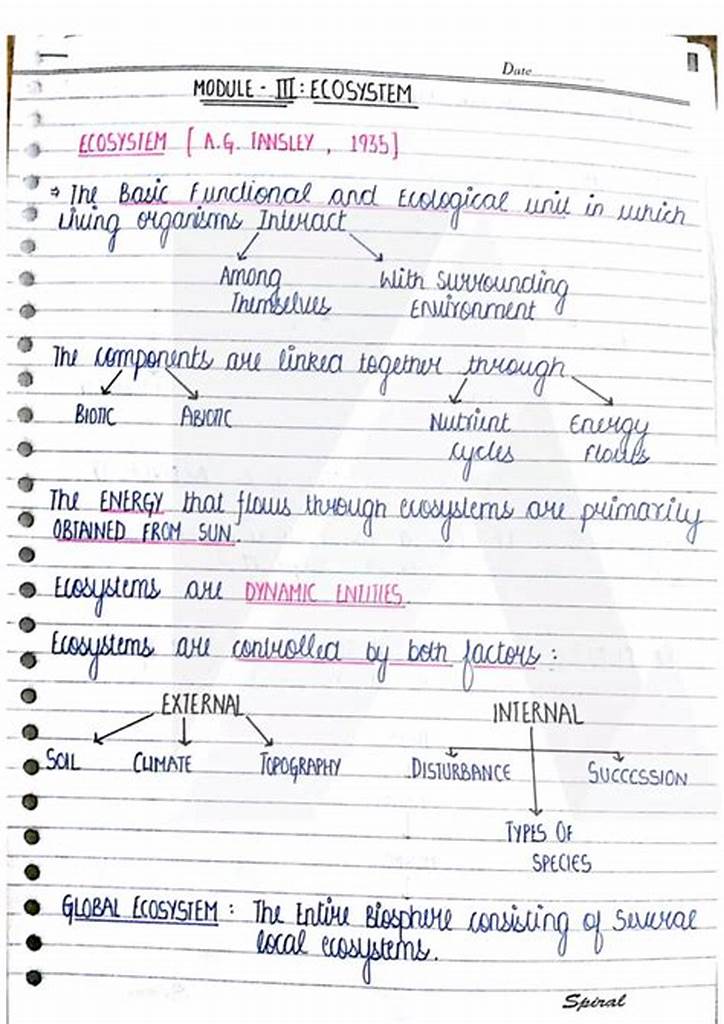 Date
MODULE - III : ECOSYSTEM
ECOSYSTEM [ A.G. TANSLEY , 1935]
⇒ The Basic Functional and Ecological unit in which
living organisms Interact
Among With Surrounding
Themselves Environment
The components are linked together through
BIOTIC ABIOTIC Nutrient Energy
cycles Flows
The ENERGY that flows through ecosystems are primarily
OBTAINED FROM SUN.
Ecosystems are DYNAMIC ENTITIES.
Ecosystems are controlled by both factors :
EXTERNAL INTERNAL
SOIL CLIMATE TOPOGRAPHY DISTURBANCE SUCCESSION
TYPES OF
SPECIES
GLOBAL ECOSYSTEM : The Entire Biosphere consisting of several
local ecosystems.
Spiral